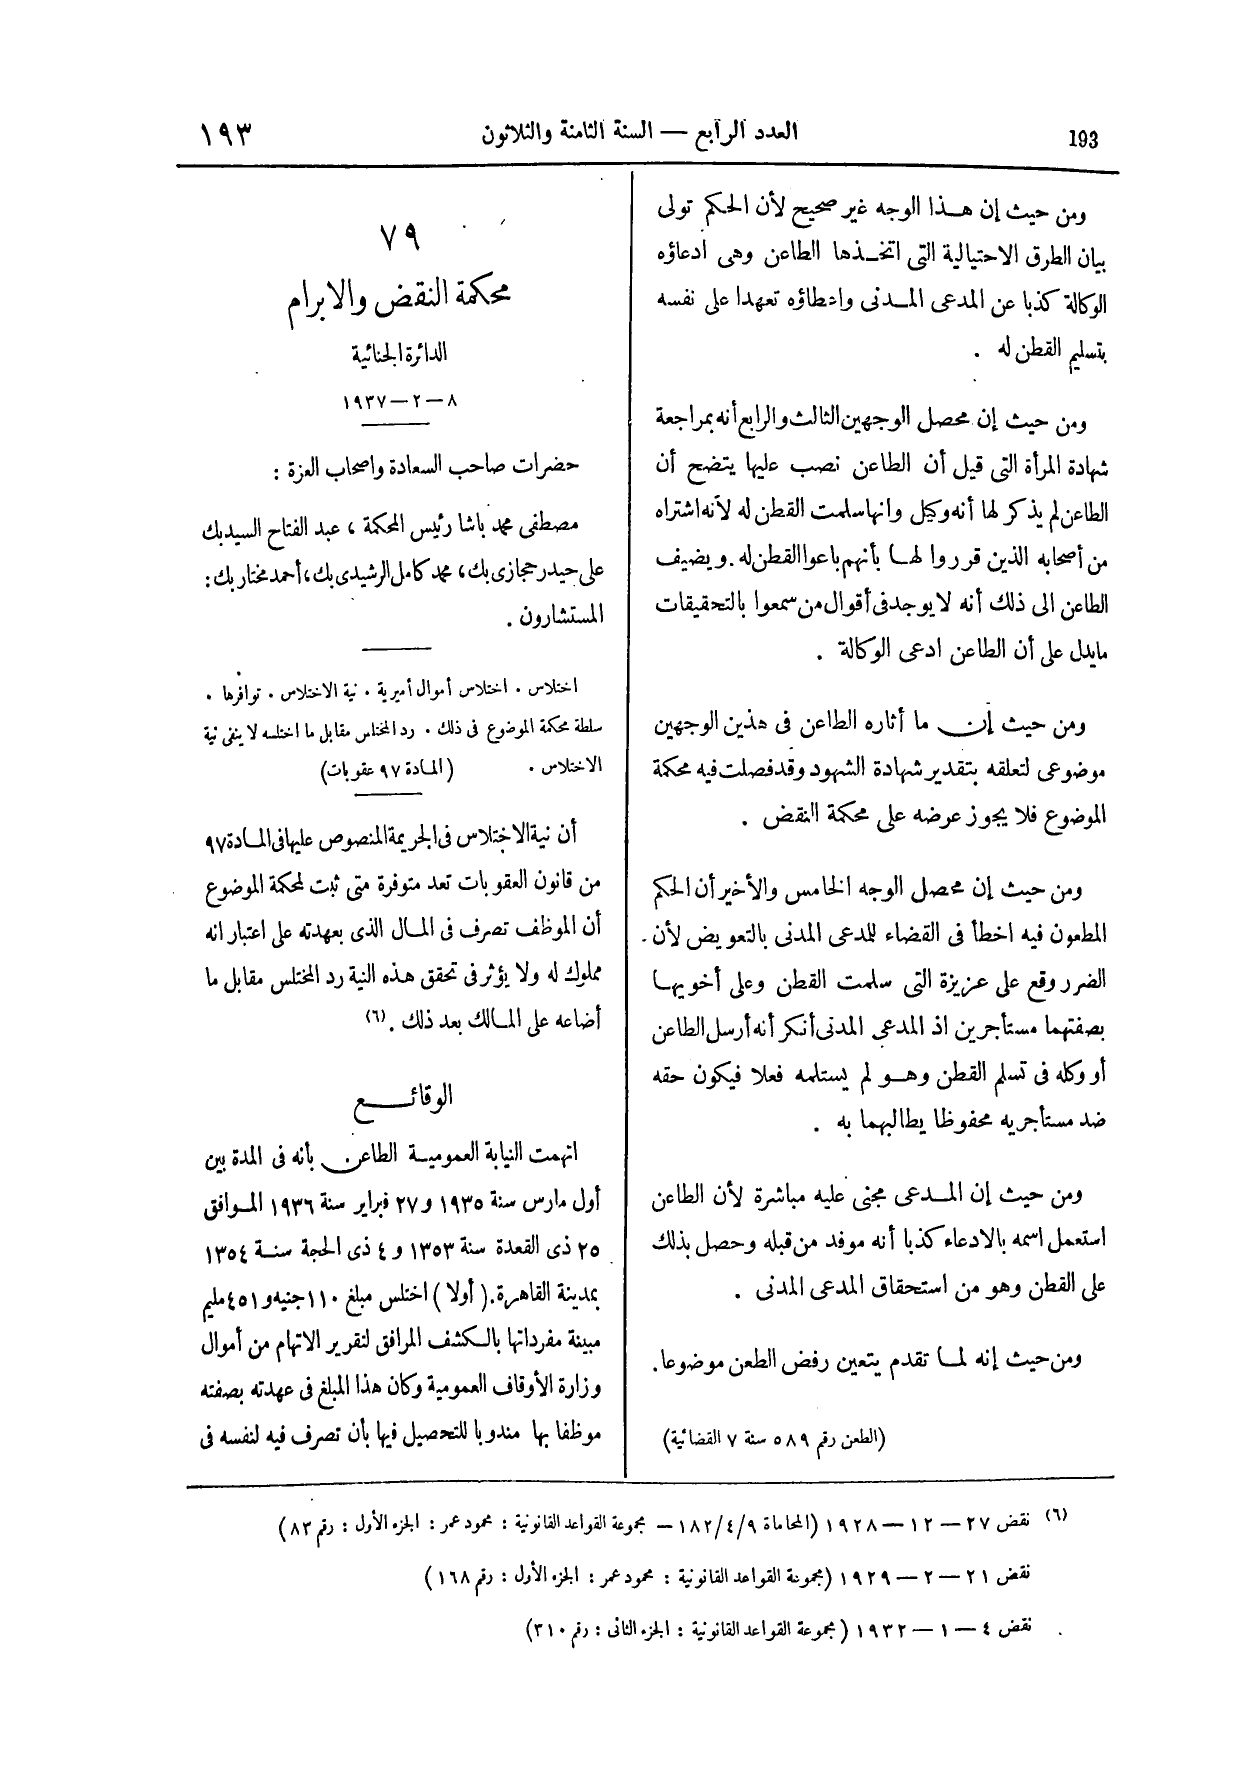 193
العدد الرابع — السنة الثامنة والثلاثون
١٩٣
ومن حيث إن هذا الوجه غير صحيح لأن الحكم تولى
بيان الطرق الاحتيالية التى اتخذها الطاعن وهى ادعاؤه
الوكالة كذبا عن المدعى المدنى واعطاؤه تعهدا على نفسه
بتسليم القطن له .
ومن حيث إن محصل الوجهين الثالث والرابع أنه بمراجعة
شهادة المرأة التى قيل أن الطاعن نصب عليها يتضح أن
الطاعن لم يذكر لها أنه وكيل وانها سلمت القطن له لأنه اشتراه
من أصحابه الذين قرروا لها بأنهم باعوا القطن له . ويضيف
الطاعن الى ذلك أنه لا يوجد فى أقوال من سمعوا بالتحقيقات
مايدل على أن الطاعن ادعى الوكالة .
ومن حيث إن ما أثاره الطاعن فى هذين الوجهين
موضوعى لتعلقه بتقدير شهادة الشهود وقد فصلت فيه محكمة
الموضوع فلا يجوز عرضه على محكمة النقض .
ومن حيث إن محصل الوجه الخامس والأخير أن الحكم
المطعون فيه اخطأ فى القضاء للمدعى المدنى بالتعويض لأن
الضرر وقع على عزيزة التى سلمت القطن وعلى أخويها
بصفتهما مستأجرين اذ المدعى المدنى أنكر أنه أرسل الطاعن
أو وكله فى تسلم القطن وهو لم يستلمه فعلا فيكون حقه
ضد مستأجريه محفوظا يطالبهما به .
ومن حيث إن المدعى مجنى عليه مباشرة لأن الطاعن
استعمل اسمه بالادعاء كذبا أنه موفد من قبله وحصل بذلك
على القطن وهو من استحقاق المدعى المدنى .
ومن حيث إنه لما تقدم يتعين رفض الطعن موضوعا .
(الطعن رقم ٥٨٩ سنة ٧ القضائية)
٧٩
محكمة النقض والابرام
الدائرة الجنائية
٨ — ٢ — ١٩٣٧
حضرات صاحب السعادة واصحاب العزة :
مصطفى محمد باشا رئيس المحكمة ، عبد الفتاح السيد بك
على حيدر حجازى بك ، محمد كامل الرشيدى بك ، أحمد مختار بك :
المستشارون .
اختلاس . اختلاس أموال أميرية . نية الاختلاس . توافرها .
سلطة محكمة الموضوع فى ذلك . رد المختلس مقابل ما اختلسه لا ينفى نية
الاختلاس . (المادة ٩٧ عقوبات)
أن نية الاختلاس فى الجريمة المنصوص عليها فى المادة ٩٧
من قانون العقوبات تعد متوفرة متى ثبت لمحكمة الموضوع
أن الموظف تصرف فى المال الذى بعهدته على اعتبار انه
مملوك له ولا يؤثر فى تحقق هذه النية رد المختلس مقابل ما
أضاعه على المالك بعد ذلك . (٦)
الوقائع
اتهمت النيابة العمومية الطاعن بأنه فى المدة بين
أول مارس سنة ١٩٣٥ و ٢٧ فبراير سنة ١٩٣٦ الموافق
٢٥ ذى القعدة سنة ١٣٥٣ و ٤ ذى الحجة سنة ١٣٥٤
بمدينة القاهرة . ( أولا ) اختلس مبلغ ١١٠ جنيه و ٤٥١ مليم
مبينة مفرداتها بالكشف المرافق لتقرير الاتهام من أموال
وزارة الأوقاف العمومية وكان هذا المبلغ فى عهدته بصفته
موظفا بها مندوبا للتحصيل فيها بأن تصرف فيه لنفسه فى
(٦) نقض ٢٧ — ١٢ — ١٩٢٨ (المحاماة ١٨٢/٤/٩ — مجموعة القواعد القانونية : محمود عمر : الجزء الأول : رقم ٨٣)
نقض ٢١ — ٢ — ١٩٢٩ (مجموعة القواعد القانونية : محمود عمر : الجزء الأول : رقم ١٦٨)
نقض ٤ — ١ — ١٩٣٢ (مجموعة القواعد القانونية : الجزء الثانى : رقم ٣١٠)